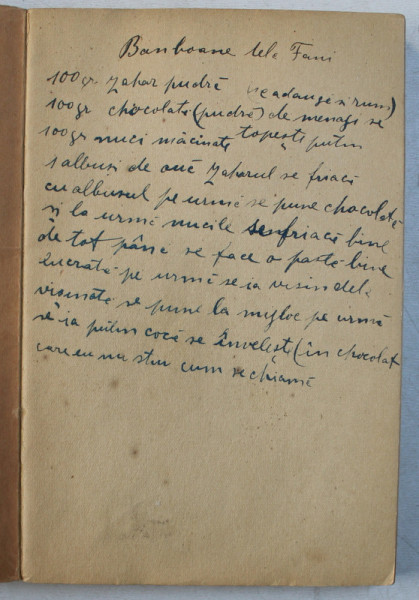 Bonboane tete Fani
100gr zahar pudră
se adauge și rum)
100gr chocolată (pudră) de menagi se
topește puțin
100gr nuci măcinate
1 albuș de ouă zaharul se friacă
cu albusul pe urmă se pune chocolată
și la urmă nucile friacă bine
de tot până se face o pastă bine
lucrată pe urmă se ia visin dela
visinată se pune la mijloc pe urmă
se ia puțin cocă se învelește (în chocolat
care eu nu stiu cum se chiamă